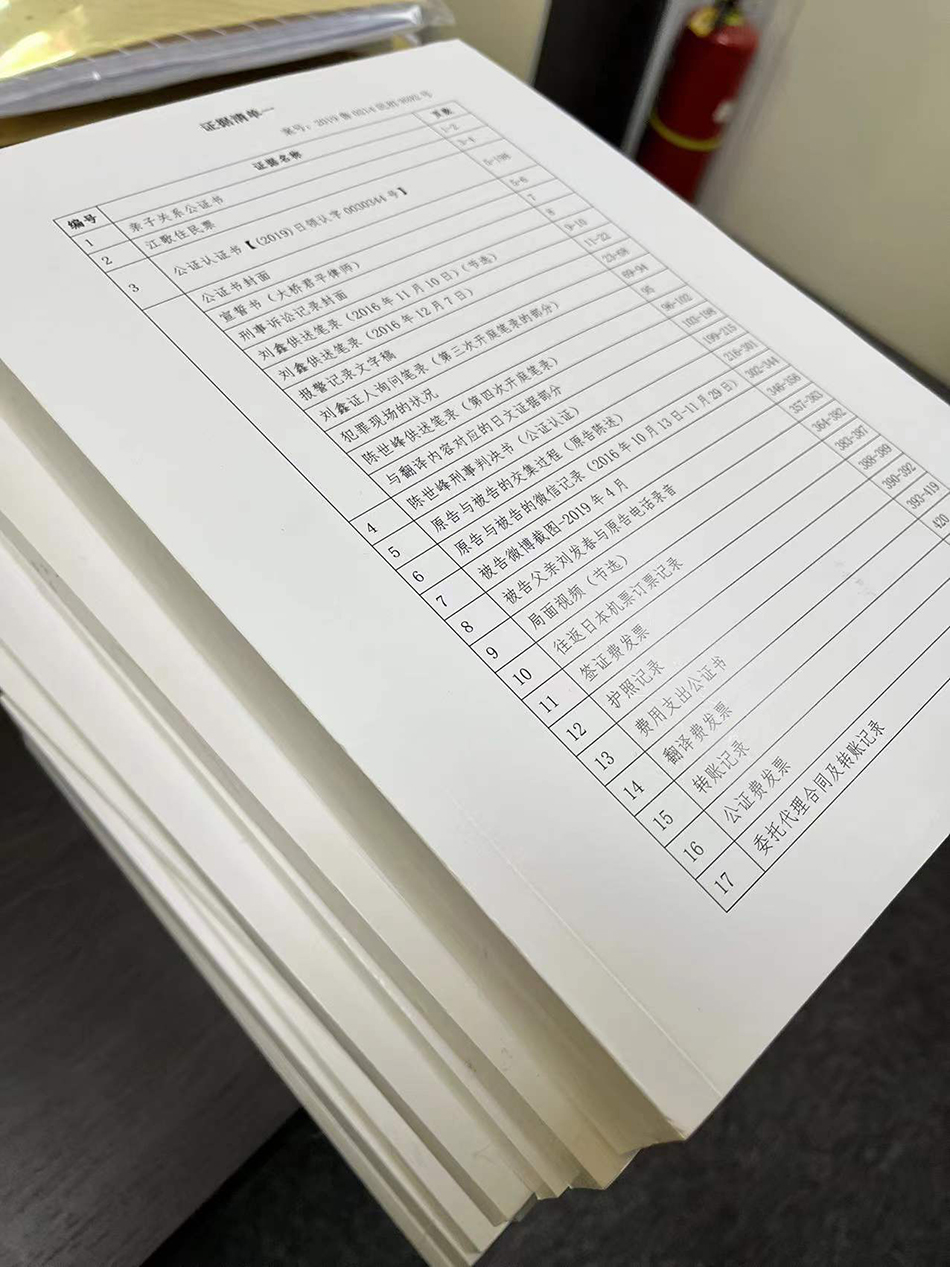 证据清单一
案号：2019 鲁 0214 民初 9592 号
编号 证据名称 页数
1 亲子关系公证书 1-2
2 江歌住民票 3-4
3 公证认证书【（2019）日领认字 0030344 号】 5-198
公证书封面 5-6
宣誓书（大桥君平律师） 7
刑事诉讼记录封面 8
刘鑫供述笔录（2016 年 11 月 10 日）（节选） 9-10
刘鑫供述笔录（2016 年 12 月 7 日） 11-22
报警记录文字稿 23-68
刘鑫证人询问笔录（第三次开庭笔录的部分） 69-94
犯罪现场的状况 95
陈世峰供述笔录（第四次开庭笔录） 96-102
与翻译内容对应的日文证据部分 103-198
4 陈世峰刑事判决书（公证认证） 199-215
5 原告与被告的交集过程（原告陈述） 216-301
6 原告与被告的微信记录（2016 年 10 月 13 日-11 月 29 日） 302-344
7 被告微博截图-2019 年 4 月
8 被告父亲刘发春与原告电话录音 357-363
9 局面视频（节选） 364-382
10 往返日本机票订票记录 383-387
11 签证费发票 388-389
12 护照记录 390-392
13 费用支出公证书 393-419
14 翻译费发票 420
15 转账记录
16 公证费发票
17 委托代理合同及转账记录